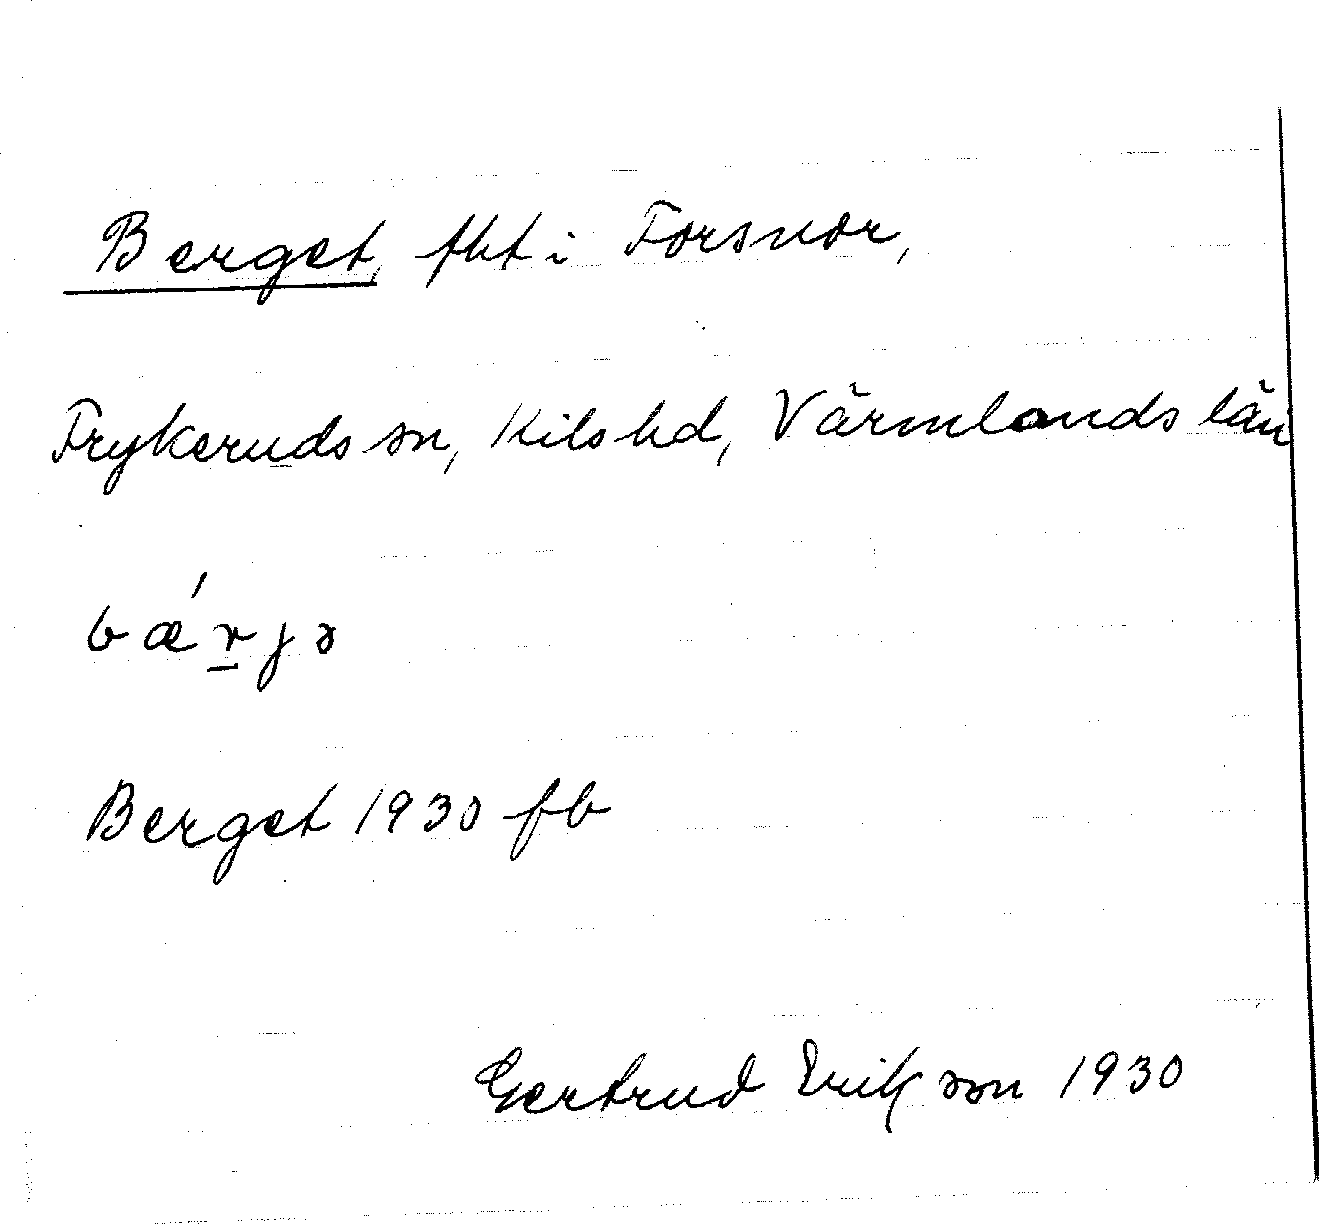 Berget, fht i Forsnor,
Frykeruds sn, Kils hd, Värmlands län
bæ´r̲jə
Berget 1930 fb
Gertrud Erikson 1930